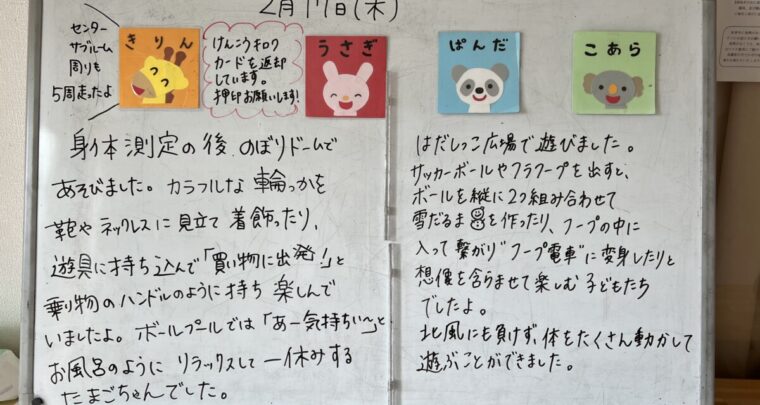 2月17日(木)
センター
サブルーム
周りも
5周走ったよ
きりん
けんこうキロク
カードを返却
しています。
押印お願いします!
うさぎ
身体測定の後、のぼりドームで
あそびました。カラフルな輪っかを
鞄やネックレスに見立て着飾ったり、
遊具に持ち込んで「買い物に出発!」と
乗り物のハンドルのように持ち楽しんで
いましたよ。ボールプールでは「あー気持ちい〜」と
お風呂のようにリラックスして一休みする
たまごちゃんでした。
ぱんだ
こあら
はだしっこ広場で遊びました。
サッカーボールやフラフープを出すと、
ボールを縦に2つ組み合わせて
雪だるまを作ったり、フープの中に
入って繋がり"フープ電車"に変身したりと
想像を含らませて楽しむ子どもたち
でしたよ。
北風にも負けず、体をたくさん動かして
遊ぶことができました。